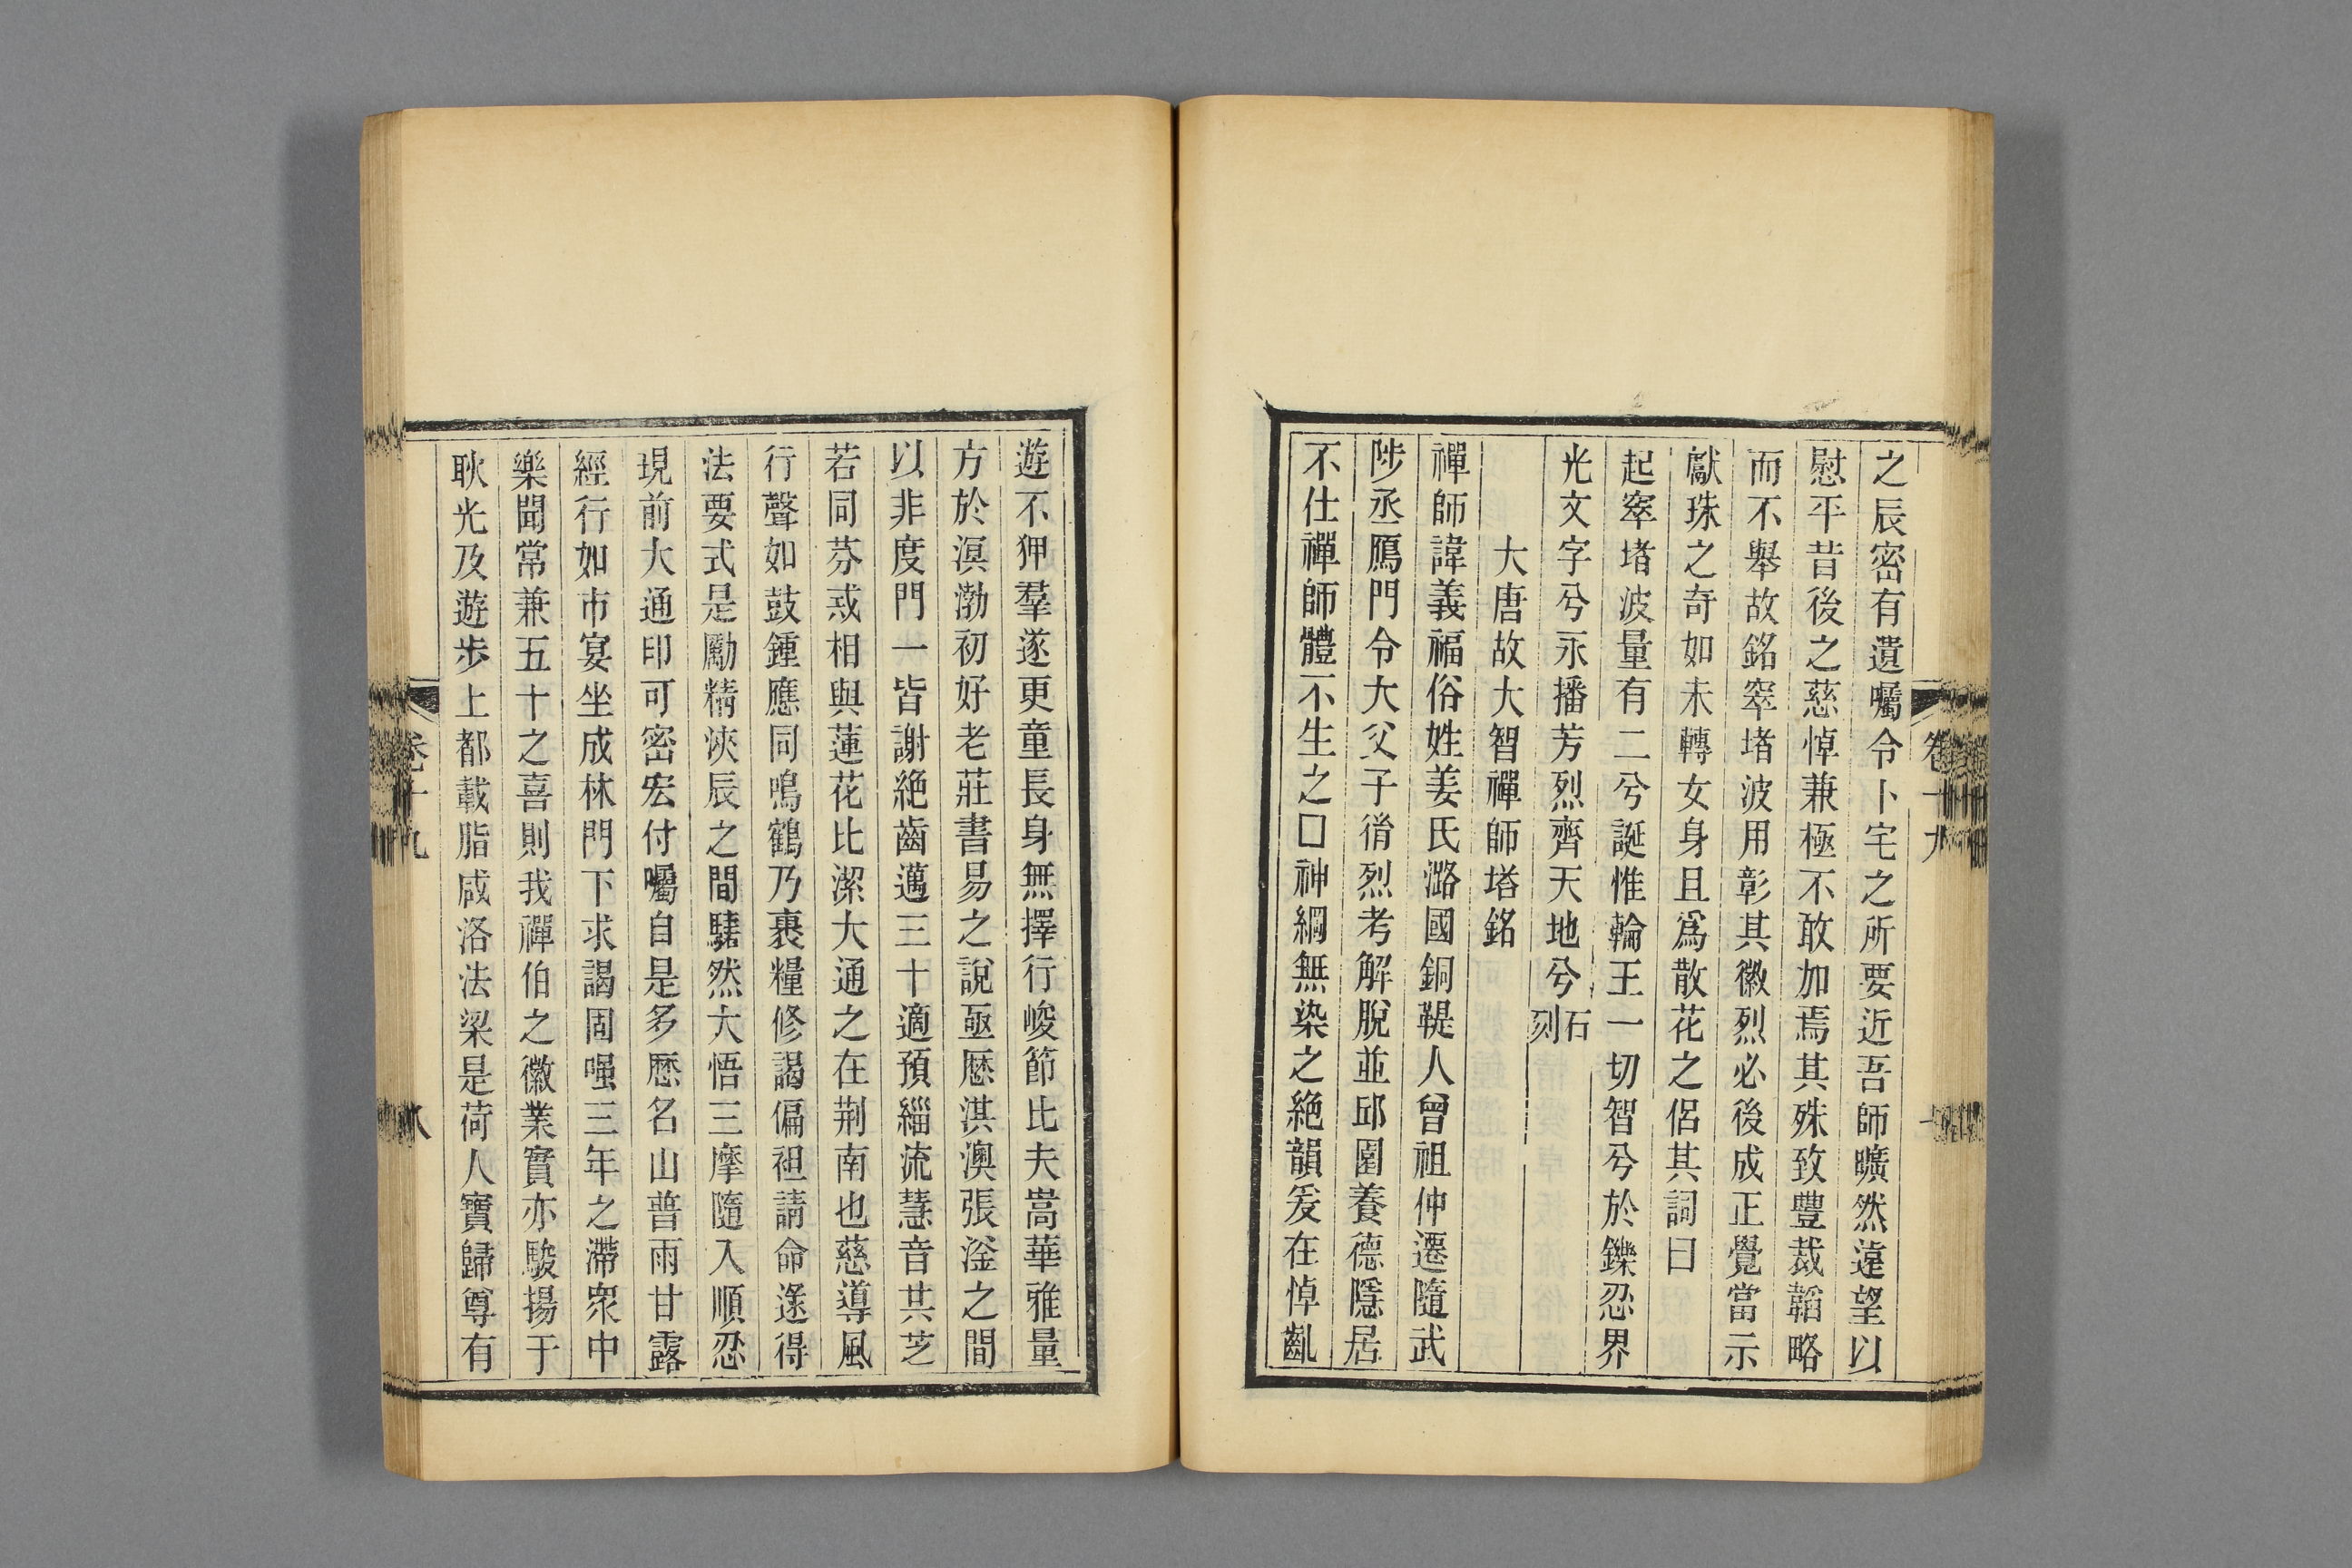 之辰密有遺囑令卜宅之所要近吾師曠然遠望以
慰平昔後之慈悼兼極不敢加焉其殊致豐裁韜略
而不舉故銘窣堵波用彰其徽烈必後成正覺當示
獻珠之奇如未轉女身且爲散花之侶其詞曰
起窣堵波量有二兮誕惟輪王一切智兮於鑠忍界
光文字兮永播芳烈齊天地兮石刻
大唐故大智禪師塔銘
禪師諱義福俗姓姜氏潞國銅鞮人曾祖仲遷隨武
陟丞鴈門令大父子㣲烈考解脫並邱園養德隱居
不仕禪師體不生之口神綱無染之絶韻爰在悼齓
遊不狎羣遂更童長身無擇行峻節比夫嵩華雅量
方於溟渤初好老莊書易之說亟歷淇澳張滏之間
以非度門一皆謝絶齒邁三十適預緇流慧音共芝
若同芬戒相與蓮花比潔大通之在荆南也慈導風
行聲如鼓鍾應同鳴鶴乃裹糧修謁偏袒請命遂得
法要式是勵精浹辰之間驍然大悟三摩隨入順忍
現前大通印可密宏付囑自是多歷名山普雨甘露
經行如市宴坐成林門下求謁固嗤三年之滯衆中
樂聞常兼五十之喜則我禪伯之徽業實亦駿揚于
耿光及遊步上都載脂咸洛法梁是荷人寶歸尊有
卷十九
八